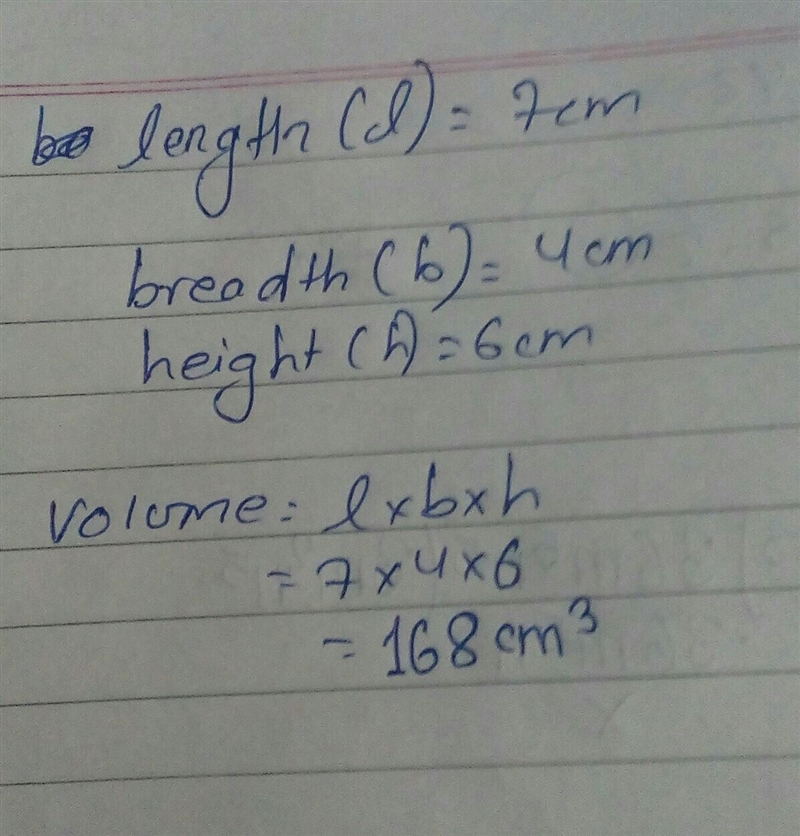 length (l) = 7cm
breadth (b) = 4cm
height (h) = 6cm
Volume = l x b x h
= 7 x 4 x 6
= 168 cm³